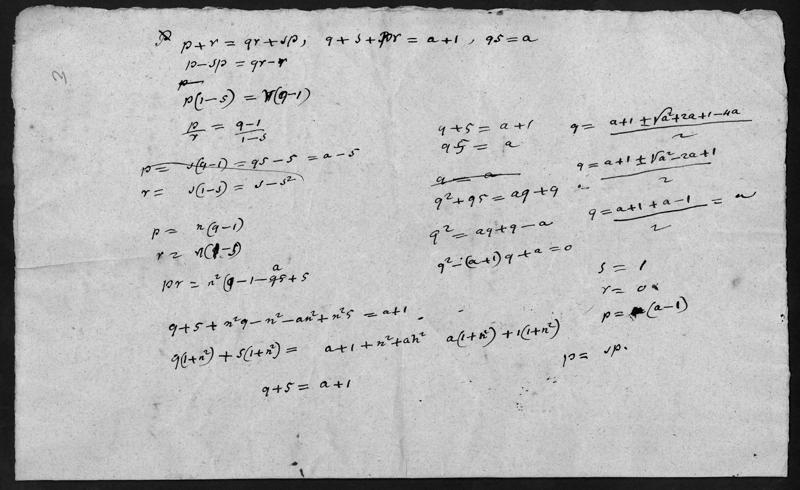 p+r = qr+sp, q+s+pr = a+1, qs = a
p-sp = qr-r
p
p(1-s) = r(q-1)
p/r = (q-1)/(1-s)
p = s(q-1) = qs-s = a-s
r = s(1-s) = s-s²
p = n(q-1)
r = n(1-s)
a
pr = n²(q-1-qs+s
q+s+n²q-n²-an²+n²s = a+1
q(1+n²)+s(1+n²) = a+1+n²+an² a(1+n²)+1(1+n²)
q+s = a+1
q+s = a+1
qs = a
a = a
q²+qs = aq+q
q² = aq+q-a
q²-(a+1)q+a=0
q = (a+1±√a²+2a+1-4a)/2
q = (a+1±√a²-2a+1)/2
q = (a+1+a-1)/2 = a
s = 1
r = 0
p = (a-1)
p = sp.
3